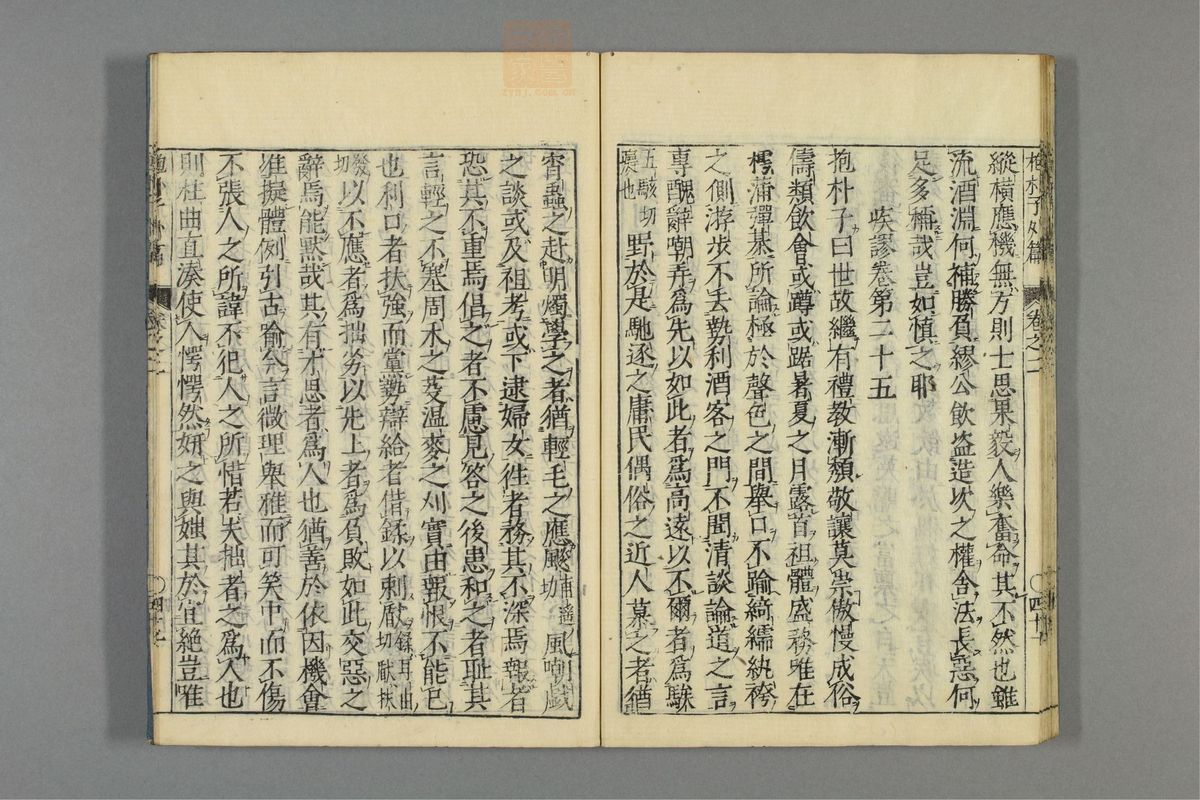 抱朴子外篇 卷之二 四十一
縱橫應機無方則士思果毅人樂奮命其不然也雖
流酒淵何補勝負繆公飲盗造次之權舍法長惡何
足多稱哉豈如愼之耶
疾謬卷第二十五
抱朴子曰世故繼有禮教漸頹敬讓莫崇傲慢成俗
儔類飲會或蹲或踞暑夏之月露首袒體盛務唯在
樗蒲彈棊所論極於聲色之間舉口不踰綺繻紈袴
之側游步不去勢利酒客之門不聞清談論道之言
專醜辭嘲弄爲先以如此者爲高遠以不爾者爲騃
五駭切
野於是馳逐之庸民偶俗之近人慕之者猶
宵蟲之赴明燭學之者猶輕毛之應飈甫遙切風嘲戲
之談或及祖考或下逮婦女往者務其不深焉報者
恐其不重焉倡之者不慮見答之後患和之者耻其
言輕之不塞周禾之芟溫麥之刈實由報恨不能已
也利口者扶強而黨勢辯給者借鍒以刺瞂
切以不應者爲拙劣以先止者爲負敗如此交惡之
辭焉能默哉其有才思者爲人也猶善於依因機會
准擬體例引古喻今言微理舉雅而可笑中而不傷
不張人之所諱不犯人之所惜若夫拙者之爲人也
則枉曲直湊使人愕愕然妍之與媸其於宜絶豈唯